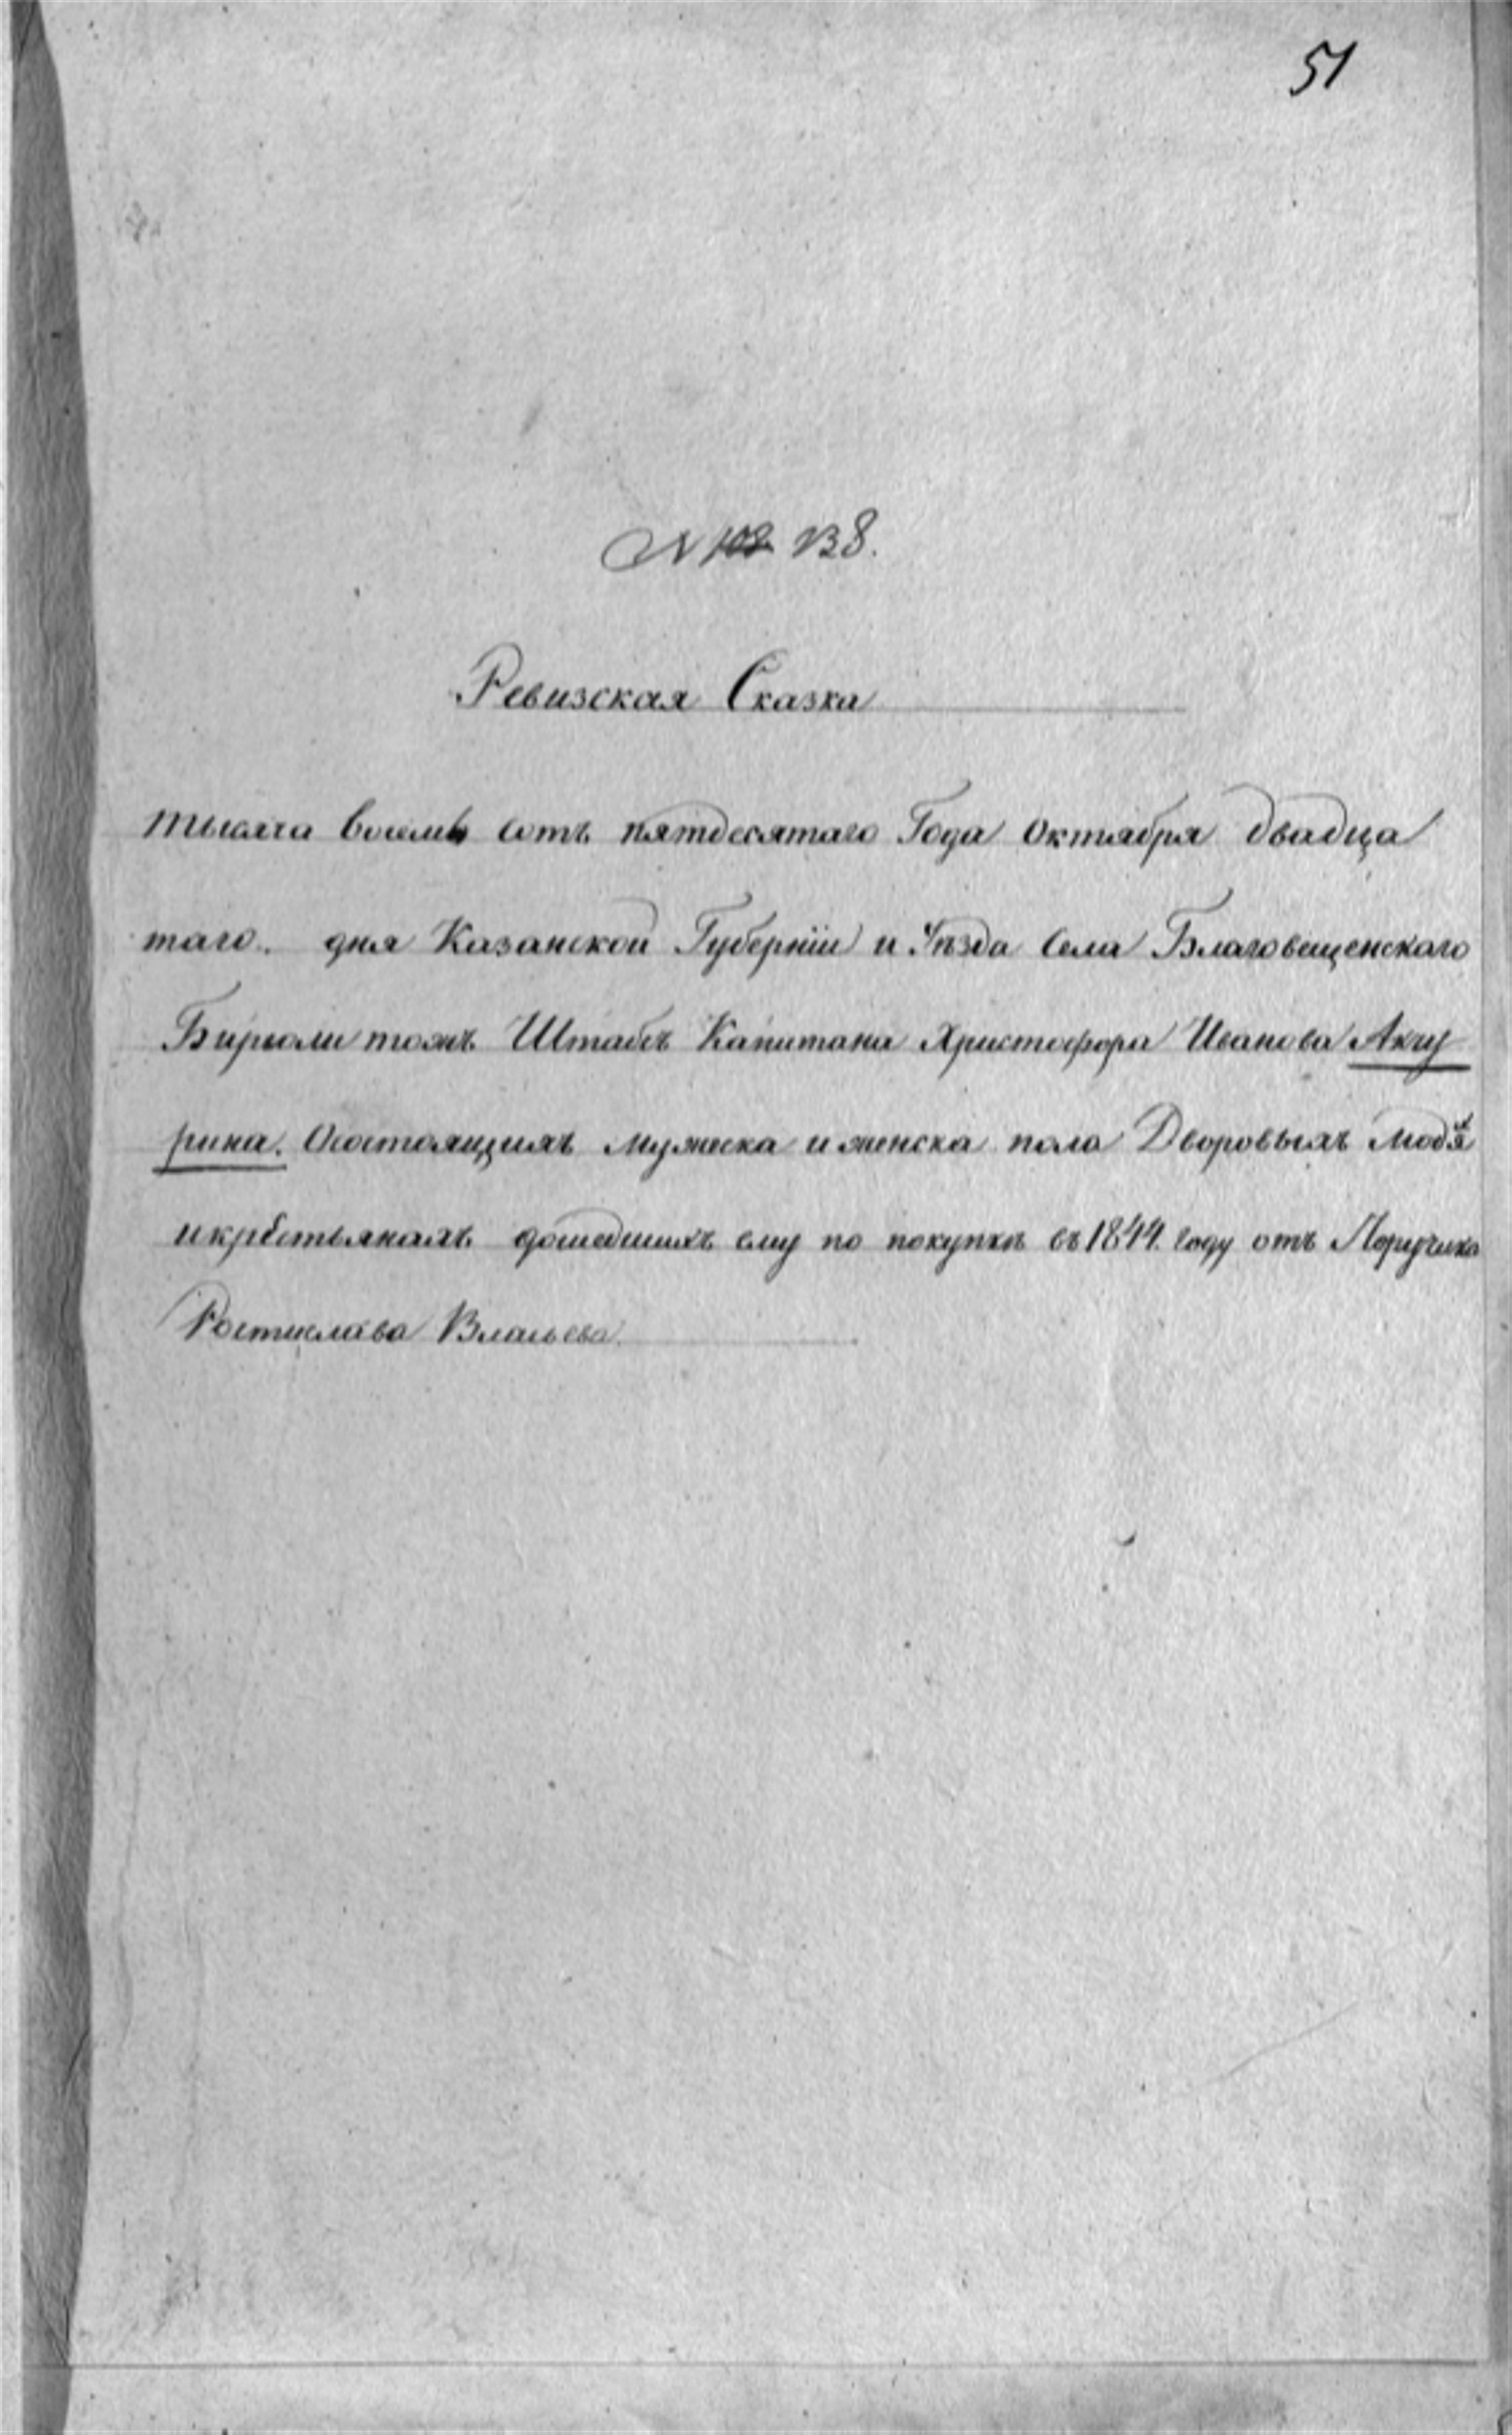 51
N 102 138.
Ревизская Сказка
тысяча восемь сотъ пятдесятаго Года Октября двадца
таго. дня Казанской Губерніи и Уѣзда Села Благовещенскаго
Бирюли тожъ Штабсъ Капитана Христофора Иванова Акчу
рина. Осостоящихъ мужеска и женска пола Дворовыхъ людя
икрестьянахъ дошедшихъ ему по покупкѣ въ 1844. году отъ Поручика
Ростислава